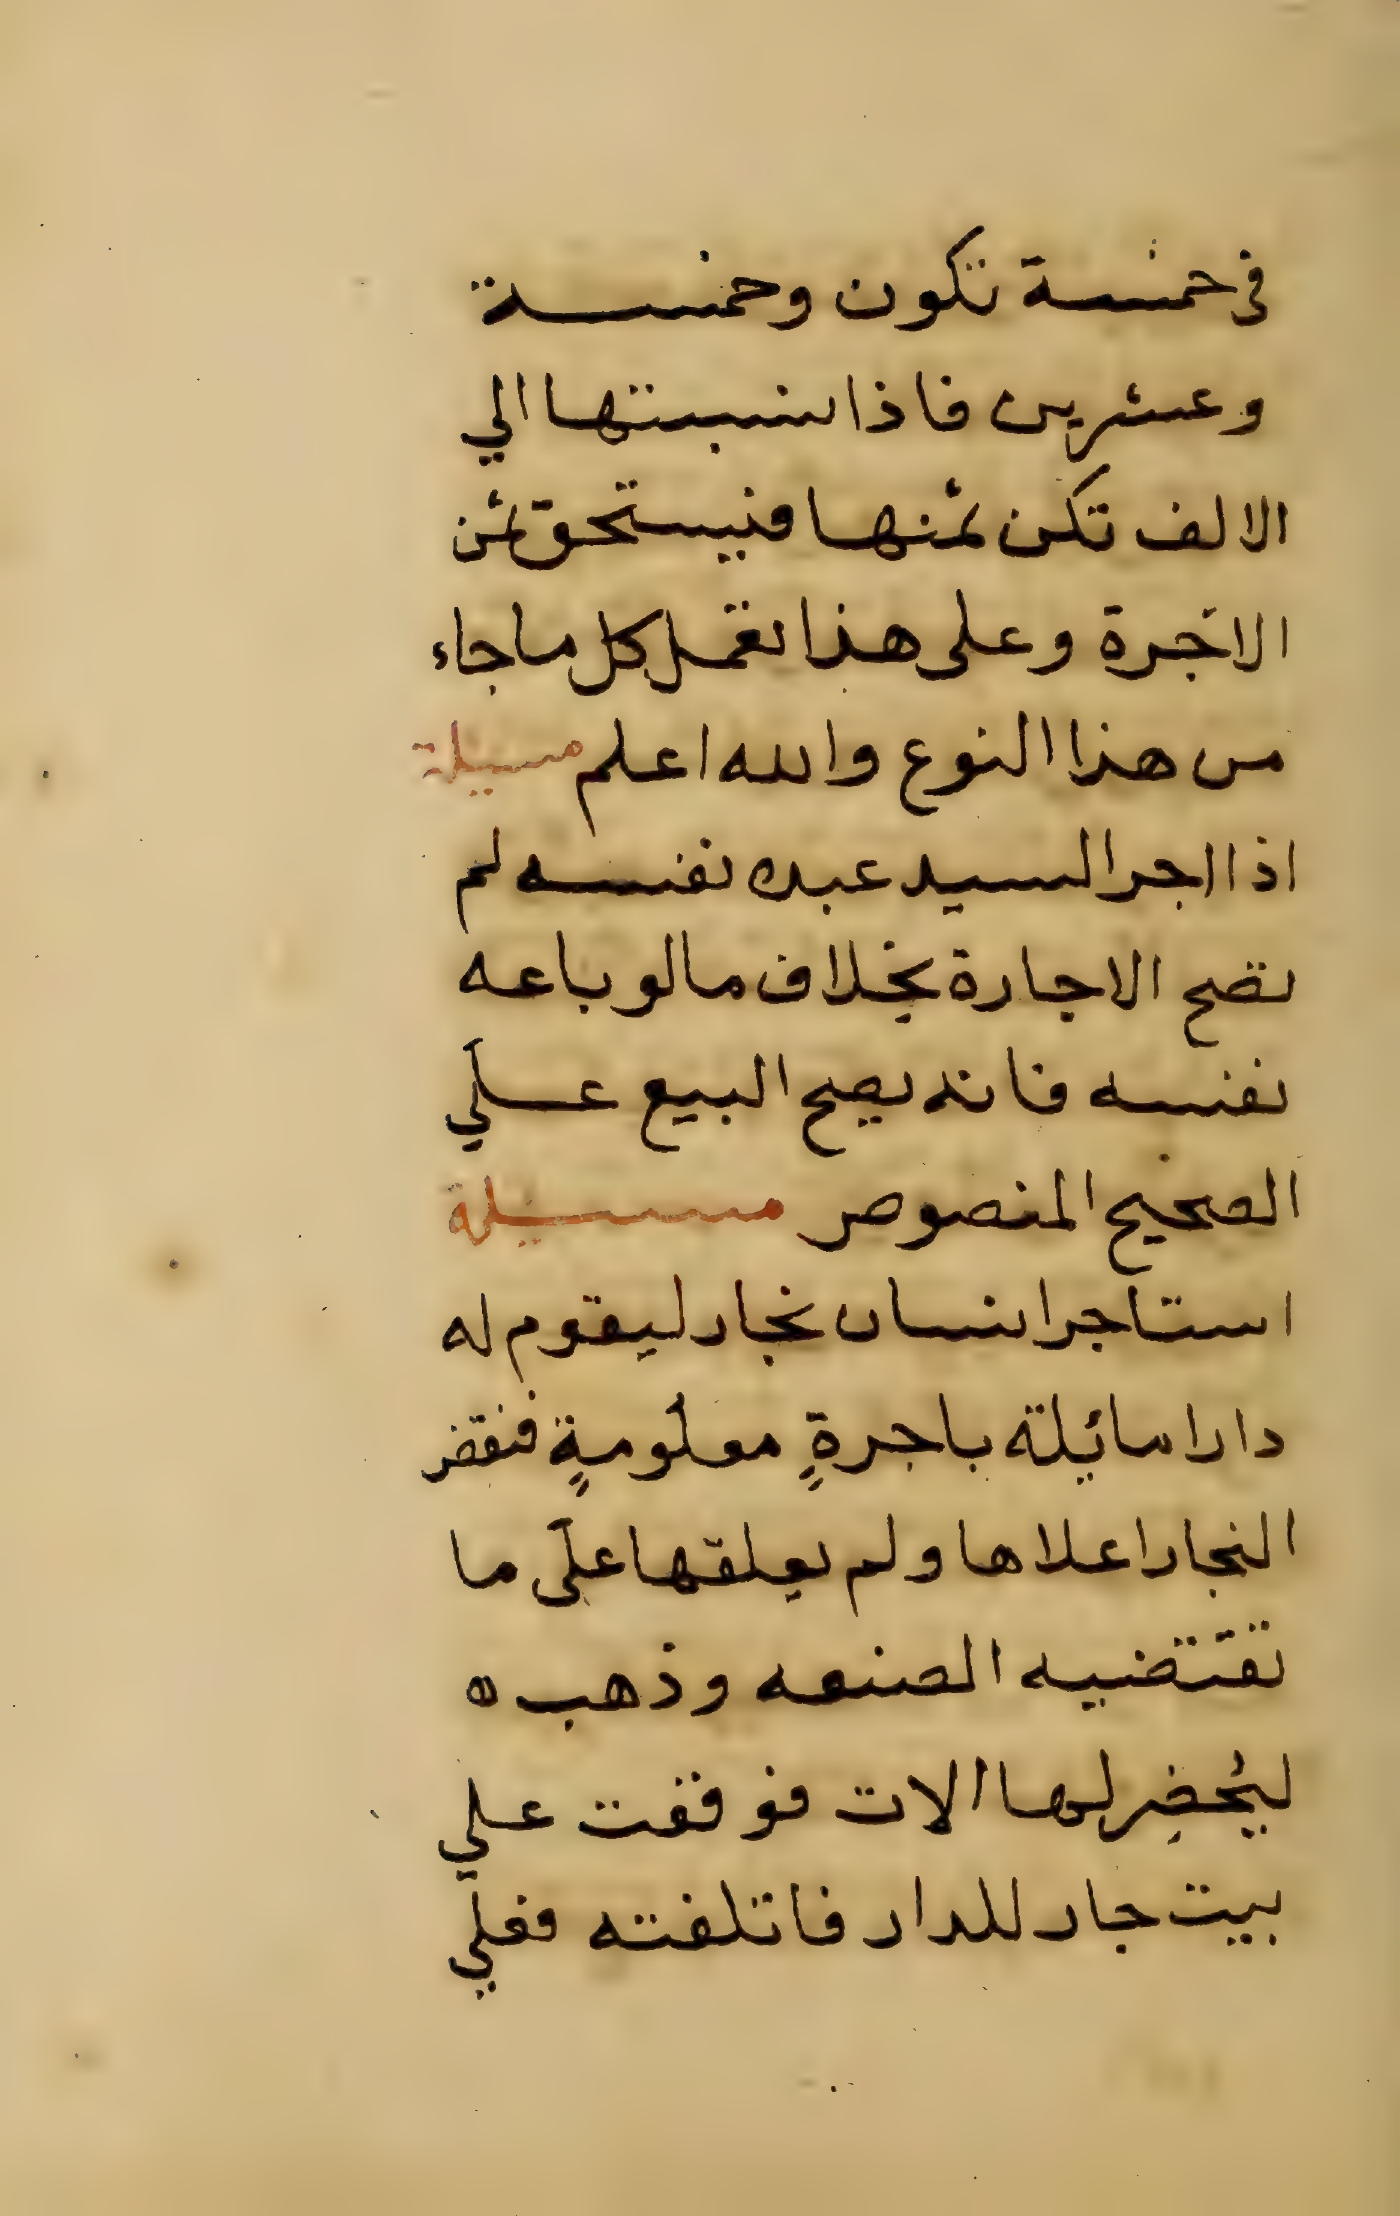 في خمسة تكون وخمسة
وعشرين فاذا نسبتها الي
الالف تكن ثمنها فيستحق ثمن
الاجرة وعلى هذا تعمل كل ما جاء
من هذا النوع والله اعلم مسيلة
اذا اجر السيد عبده نفسه لم
تصح الاجارة بخلاف مالو باعه
نفسه فانه يصح البيع علي
الصحيح المنصوص مسيلة
استاجر انسان نجار ليقوم له
دارا مايلة باجرةٍ معلومةٍ فنقض
النجار اعلاها ولم يعلقها على ما
تقتضيه الصنعه وذهب ه
ليحضر لها الات فوقفت علي
بيت جار للدار فاتلفته فعلي